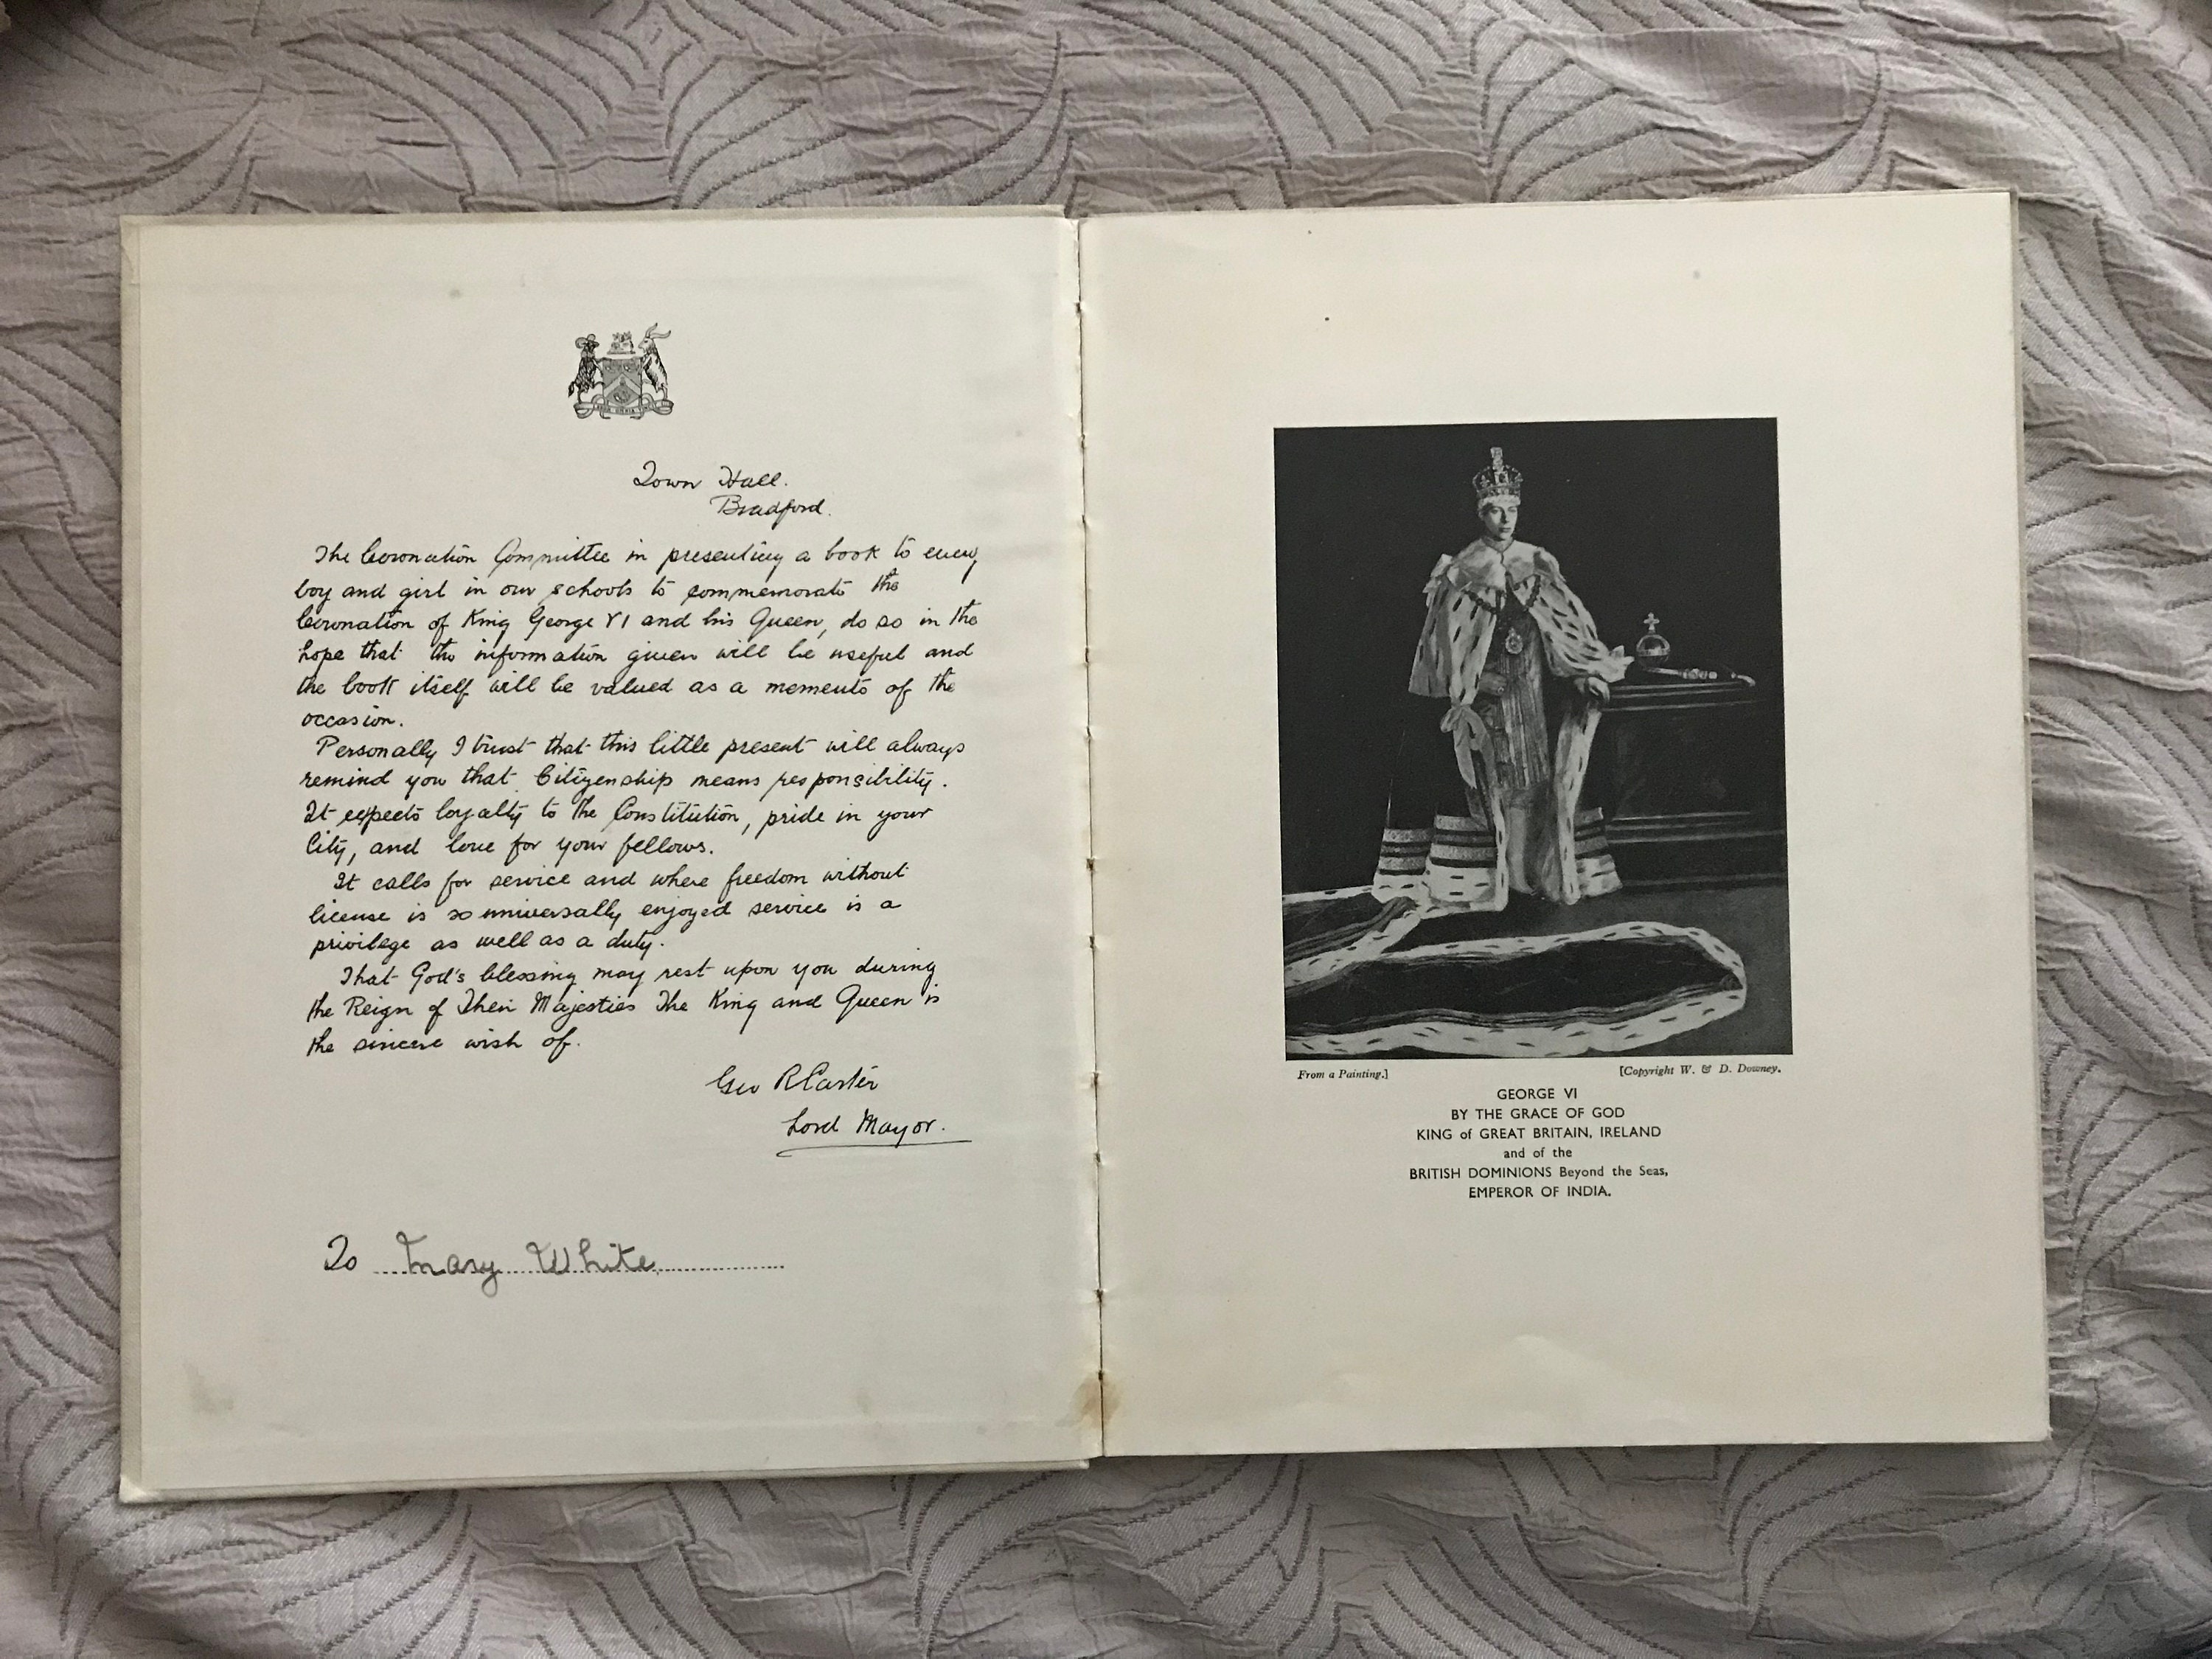 Town Hall.
Bradford.
The Coronation Committee in presenting a book to every
boy and girl in our schools to commemorate the
Coronation of King George VI and his Queen, do so in the
hope that the information given will be useful and
the book itself will be valued as a memento of the
occasion.
Personally I trust that this little present will always
remind you that Citizenship means responsibility.
It expects loyalty to the Constitution, pride in your
City, and love for your fellows.
It calls for service and where freedom without
license is so universally enjoyed service is a
privilege as well as a duty.
That God's blessing may rest upon you during
the Reign of Their Majesties The King and Queen is
the sincere wish of.
Geo R Carter
Lord Mayor.
To Mary White
From a Painting.] [Copyright W. & D. Downey.
GEORGE VI
BY THE GRACE OF GOD
KING of GREAT BRITAIN, IRELAND
and of the
BRITISH DOMINIONS Beyond the Seas,
EMPEROR OF INDIA.